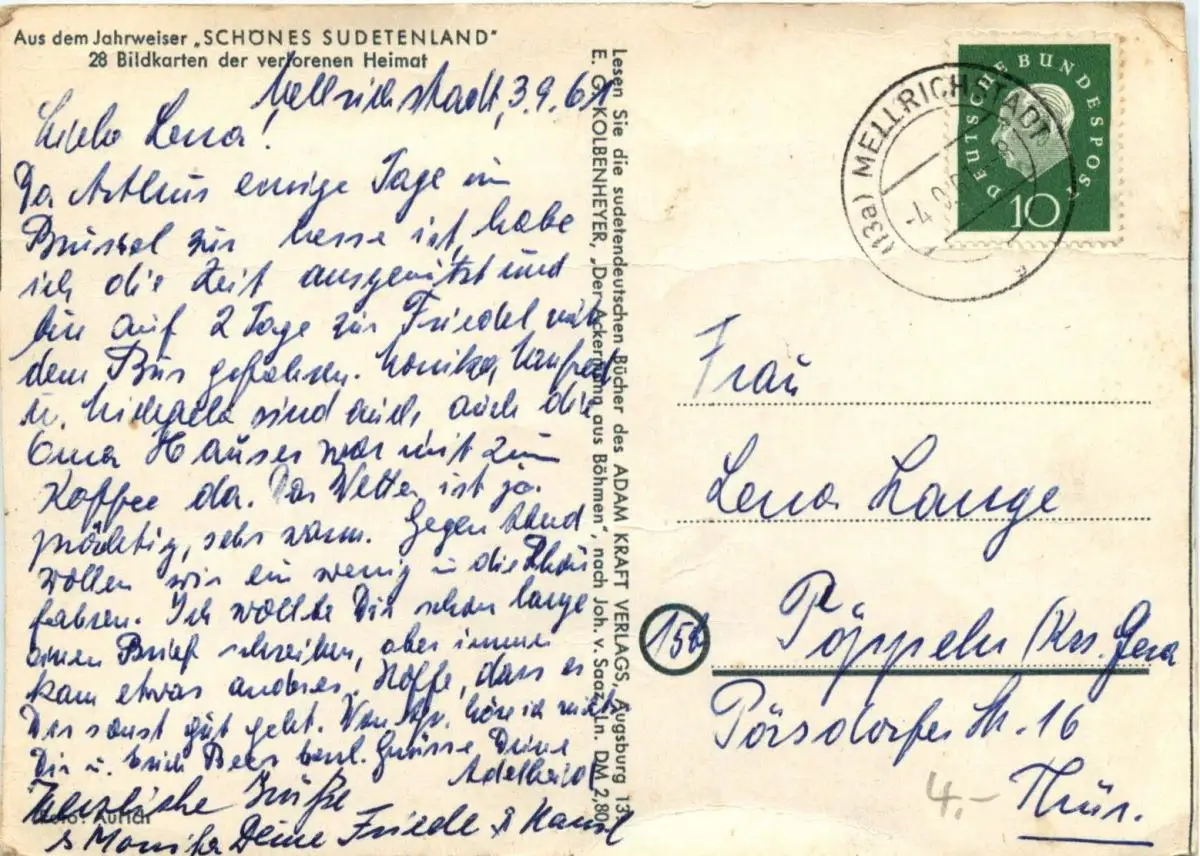 Aus dem Jahrweiser „SCHÖNES SUDETENLAND"
28 Bildkarten der verlorenen Heimat
Mellrichstadt, 3.9.61
Liebe Lena!
Da Arthur einige Tage in
Brüssel zur Messe ist, habe
ich die Zeit ausgenützt und
bin auf 2 Tage zur Friedel mit
dem Bus gefahren. Monika, Manfred
u. Michaela sind auch, auch die
Oma Hauser war mit zum
Kaffee da. Das Wetter ist ja
prächtig, sehr warm. Gegen Abend
wollen wir ein wenig in die Rhön
fahren. Ich wollte Dir schon lange
einen Brief schreiben, aber immer
kam etwas anderes. Hoffe, dass es
Dir sonst gut geht. Von höre ich nichts
Dir u. Grüsse Deine
Adelheid
Herzliche Grüße
Deine Friedel &
& Monika
Foto: Aurich
Lesen Sie die sudetendeutschen Bücher des ADAM KRAFT VERLAGS, Augsburg 13
E. G. KOLBENHEYER, „Der Ackermann aus Böhmen", nach Joh. v. Saaz, Ln. DM 2,80
(13a) MELLRICHSTADT
-4.9.61
DEUTSCHE BUNDESPOST
10
Frau
Lena Lange
15b
Pöppeln (Krs. Gera
Pörsdorfer Str. 16
Thür.
4.-